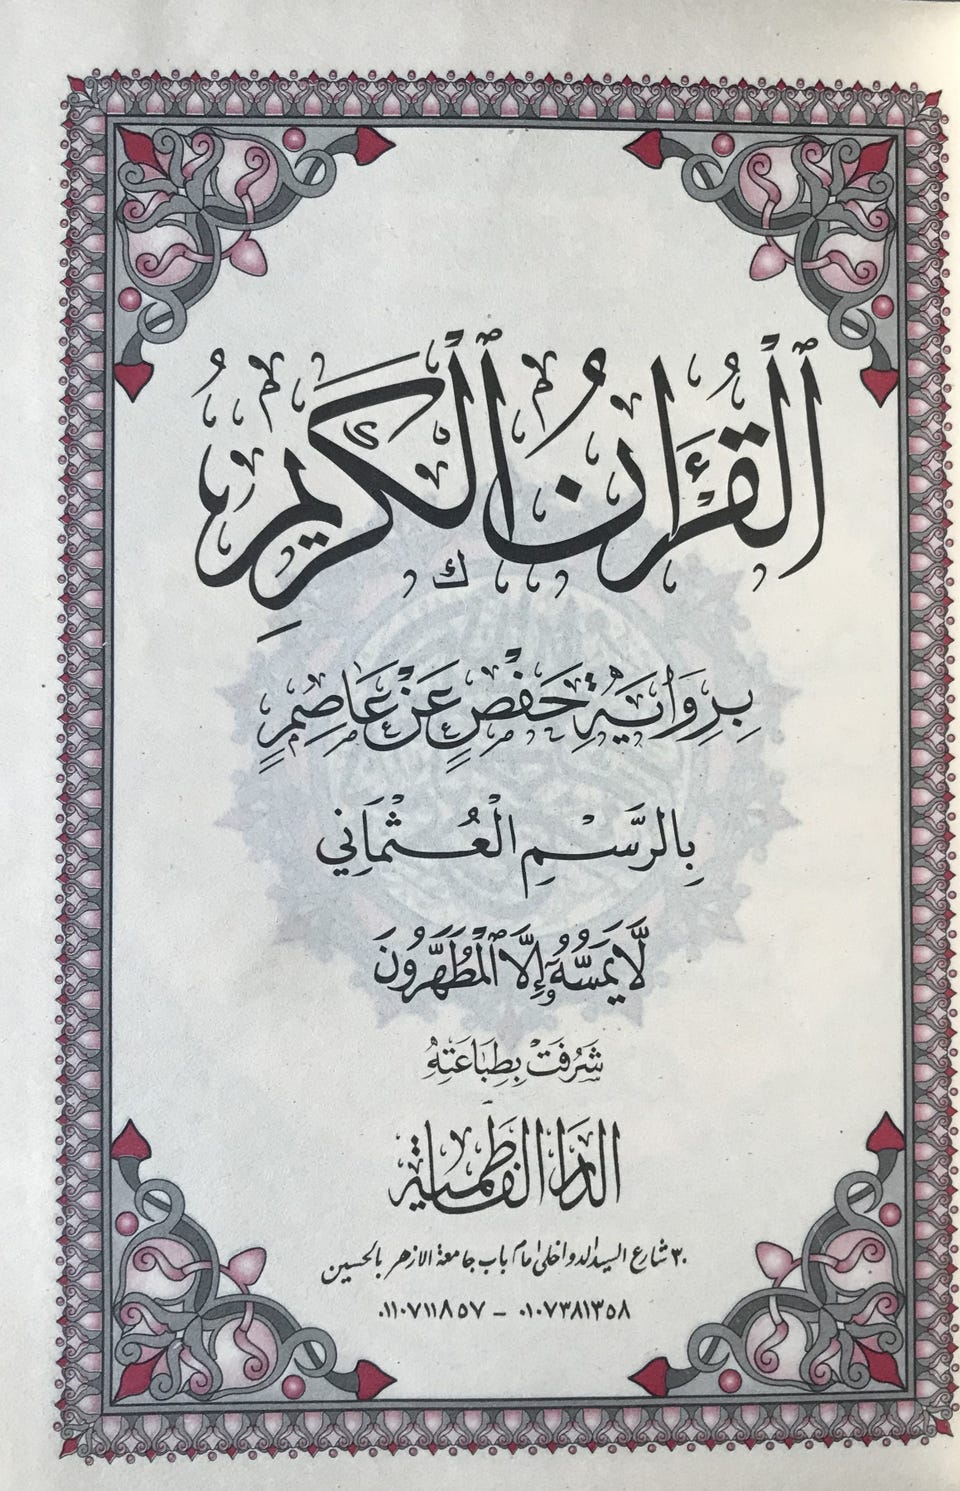 ٱلْقُرْءَانُ ٱلْكَرِيمُ
بِرِوَايَةِ حَفْصٍ عَنْ عَاصِمٍ
بِالرَّسْمِ الْعُثْمَانِي
لَّا يَمَسُّهُۥٓ إِلَّا ٱلْمُطَهَّرُونَ
شَرُفَتْ بِطِبَاعَتِهِ
الدار الفاطمية
٣٠ شارع السيد الدواخلى امام باب جامعة الازهر بالحسين
٠١٠٧٣٨١٣٥٨ – ٠١١٠٧١١٨٥٧